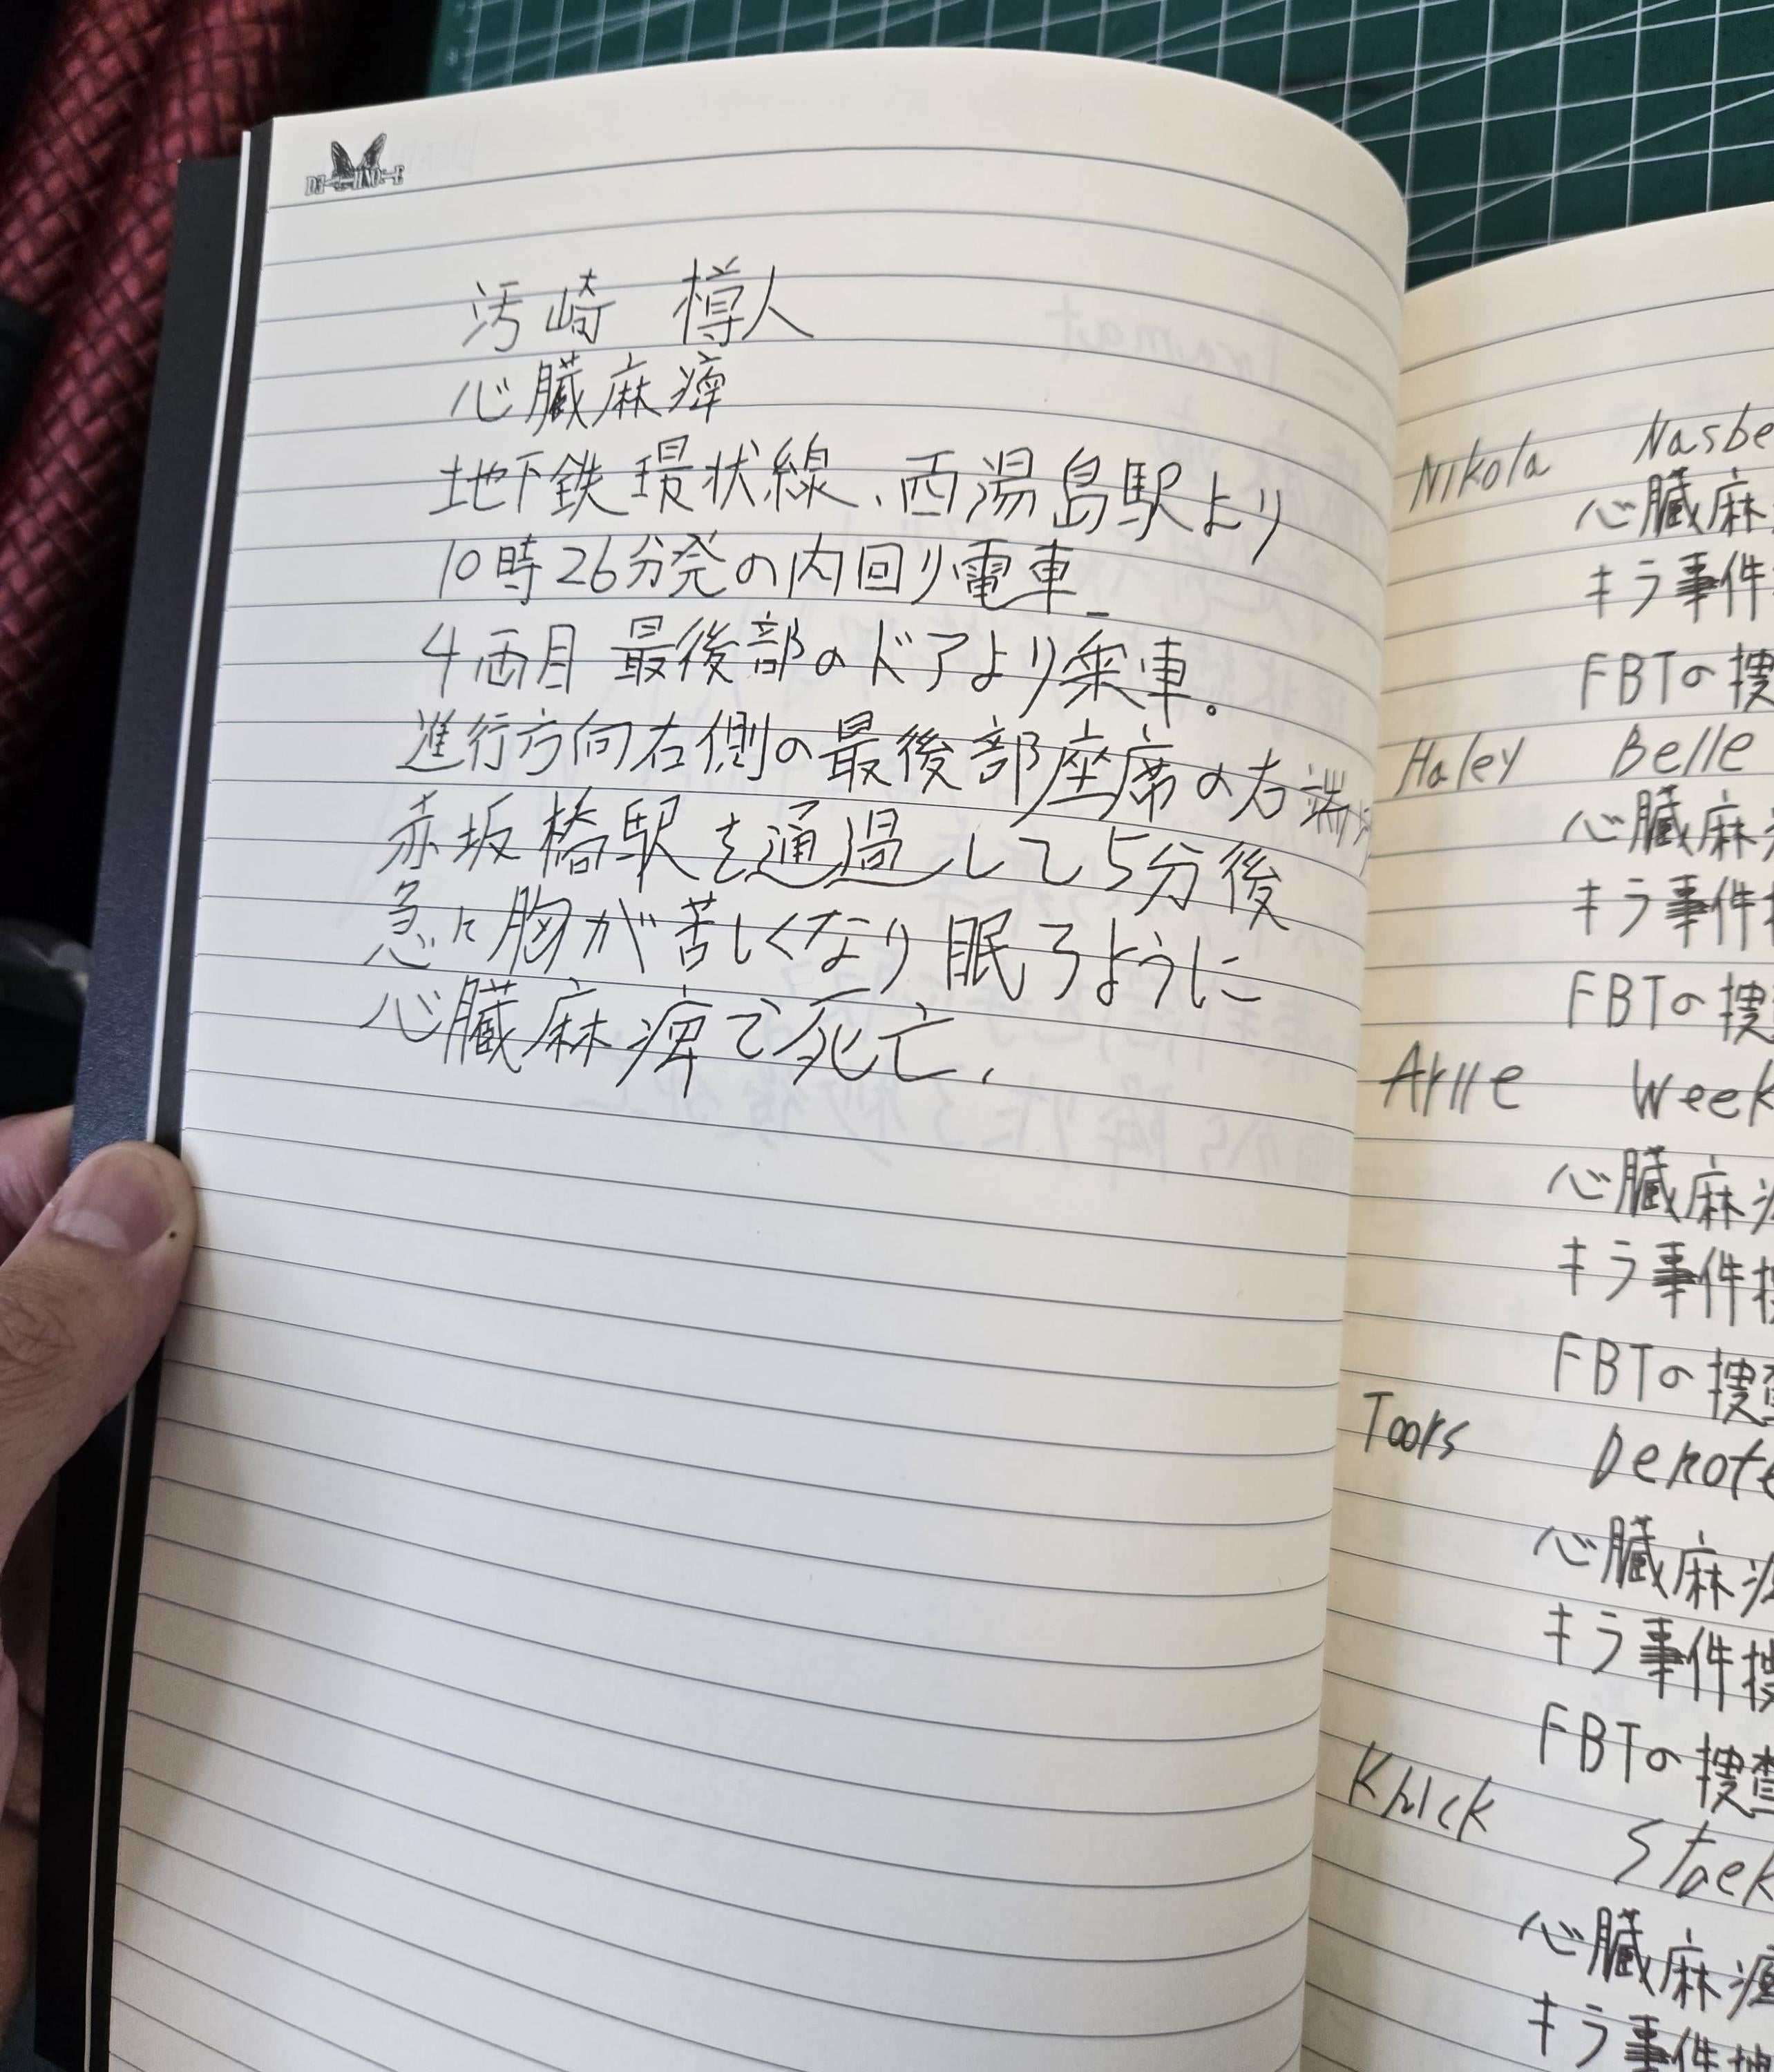 汚崎 樽人
心臓麻痺
地下鉄環状線、西湯島駅より
10時26分発の内回り電車
4両目 最後部のドアより乗車。
進行方向右側の最後部座席の右端
赤坂橋駅を通過して5分後
急に胸が苦しくなり眠るように
心臓麻痺で死亡、
Nikola Nasbe
心臓麻
キラ事件
FBIの捜
Haley Belle
心臓麻
キラ事件
FBIの捜
Arire Week
心臓麻
キラ事件
FBIの捜査
Toors Denote
心臓麻
キラ事件捜
FBIの捜査
Knick Staek
心臓麻痺
キラ事件